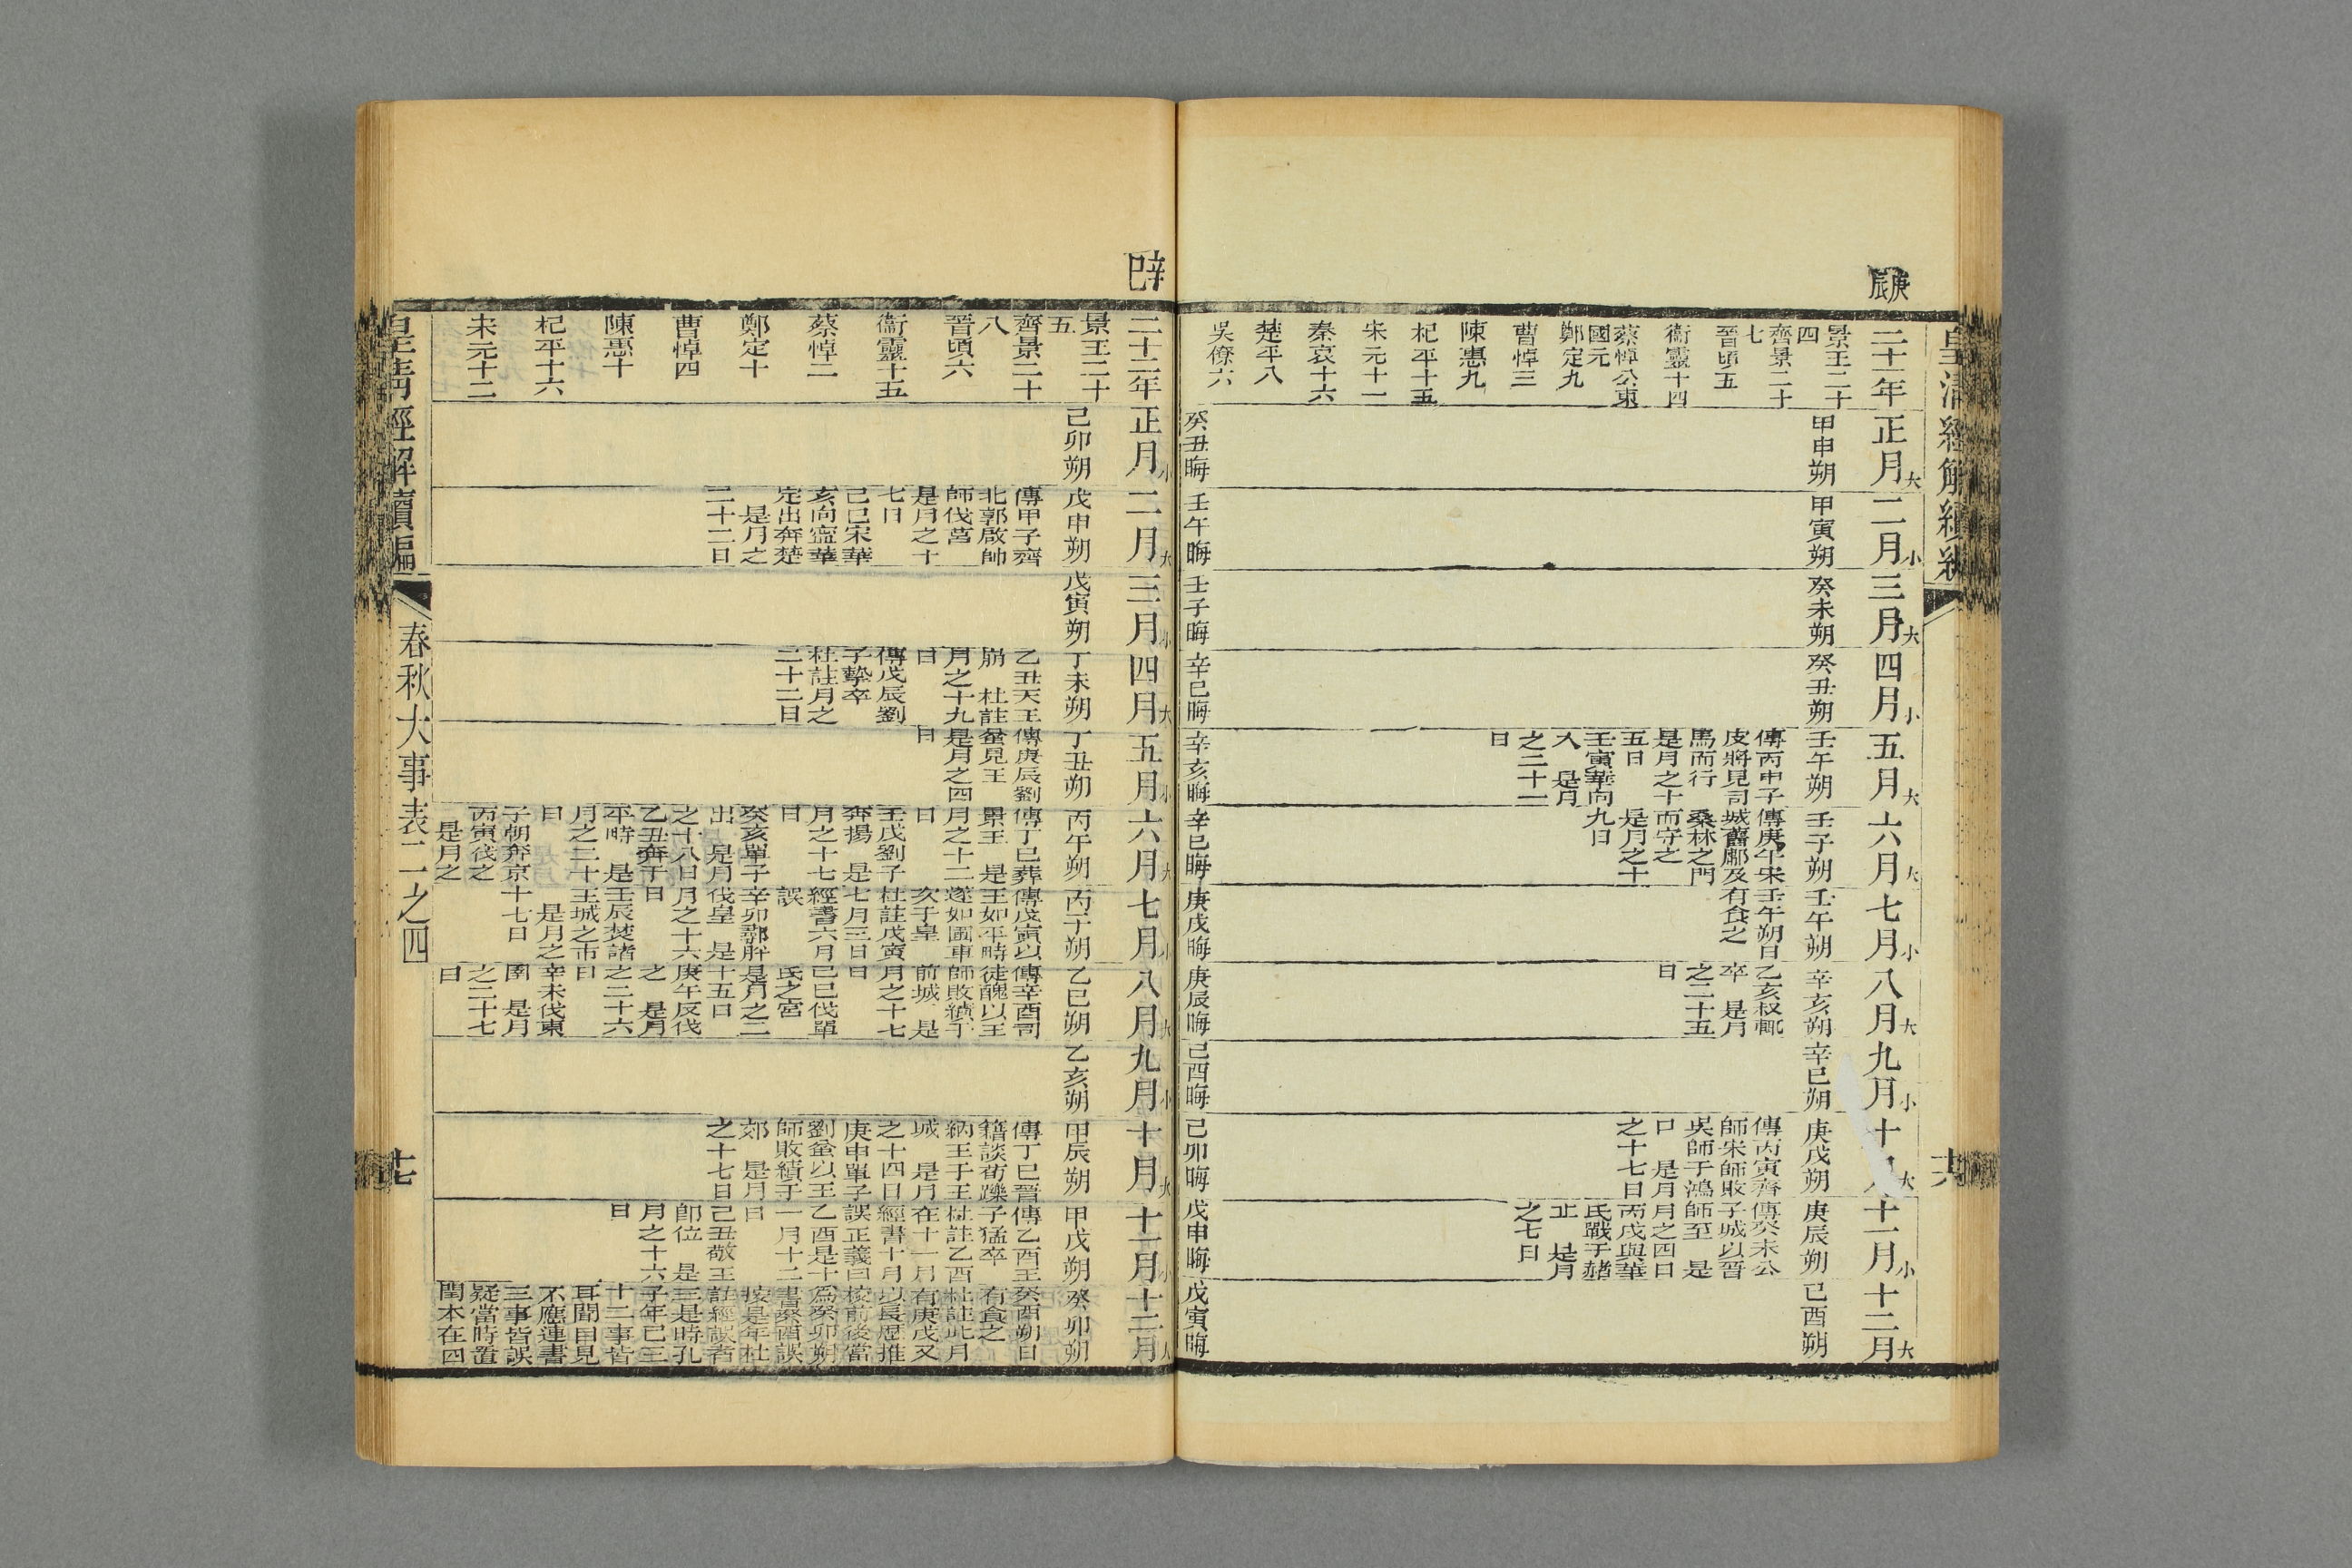 皇清經解續編
十六
庚辰
二十一年
景王二十
四
齊景二十
七
晉頃五
衞靈十四
蔡悼公東
國元
鄭定九
曹悼三
陳惠九
杞平十五
宋元十一
秦哀十六
楚平八
吳僚六
正月大
甲申朔
癸丑晦
二月小
甲寅朔
壬午晦
三月大
癸未朔
壬子晦
四月小
癸丑朔
辛巳晦
五月大
壬午朔
傳丙申子
皮將見司
馬而行
是月之十
五日
壬寅華向
入　是月
之二十一
日
辛亥晦
六月大
壬子朔
傳庚午宋
城舊鄘及
桑林之門
而守之
是月之十
九日
辛巳晦
七月小
壬午朔
壬午朔日
有食之
庚戌晦
八月大
辛亥朔
乙亥叔輒
卒　是月
之二十五
日
庚辰晦
九月小
辛巳朔
己酉晦
十月大
庚戌朔
傳丙寅齊
師宋師敗
吳師于鴻
口　是月
之十七日
己卯晦
十一月小
庚辰朔
傳癸未公
子城以晉
師至　是
月之四日
丙戌與華
氏戰于赭
丘　是月
之七日
戊申晦
十二月大
己酉朔
戊寅晦
辛巳
二十二年
景王二十
五
齊景二十
八
晉頃六
衞靈十五
蔡悼二
鄭定十
曹悼四
陳惠十
杞平十六
宋元十二
正月小
己卯朔
二月大
戊申朔
傳甲子齊
北郭啟帥
師伐莒
是月之十
七日
己巳宋華
亥向寧華
定出奔楚
　是月之
二十二日
三月小
戊寅朔
四月大
丁未朔
乙丑天王
崩　杜註
月之十九
日
傳戊辰劉
子摯卒
杜註月之
二十二日
五月小
丁丑朔
傳庚辰劉
蚠見王
是月之四
日
六月大
丙午朔
傳丁巳葬
景王　是
月之十二
日
壬戌劉子
奔揚　是
月之十七
日
癸亥單子
出　是月
之十八日
乙丑奔于
平畤　是
月之二十
日
子朝奔京
丙寅伐之
　是月之
七月小
丙子朔
傳戊寅以
王如平畤
遂如圃車
次于皇
杜註戊寅
七月三日
經書六月
誤
辛卯鄩肸
伐皇　是
月之十六
日
壬辰焚諸
王城之市
　是月之
十七日
八月大
乙巳朔
傳辛酉司
徒醜以王
師敗績于
前城　是
月之十七
日
己巳伐單
氏之宮
是月之二
十五日
庚午反伐
之　是月
之二十六
日
辛未伐東
圉　是月
之二十七
日
九月小
乙亥朔
十月大
甲辰朔
傳丁巳晉
籍談荀躒
納王于王
城　是月
之十四日
庚申單子
劉蚠以王
師敗績于
郊　是月
之十七日
十一月小
甲戌朔
傳乙酉王
子猛卒
杜註乙酉
在十一月
經書十月
誤正義曰
乙酉是十
一月十二
日
己丑敬王
卽位　是
月之十六
日
十二月大
癸卯朔
癸酉朔日
有食之
杜註此月
有庚戌又
以長歷推
校前後當
爲癸卯朔
書癸酉誤
按是年杜
註經誤者
三是時孔
子年已三
十二事皆
耳聞目見
不應連書
三事皆誤
疑當時置
閏本在四
皇清經解續編
春秋大事表二之四
十七